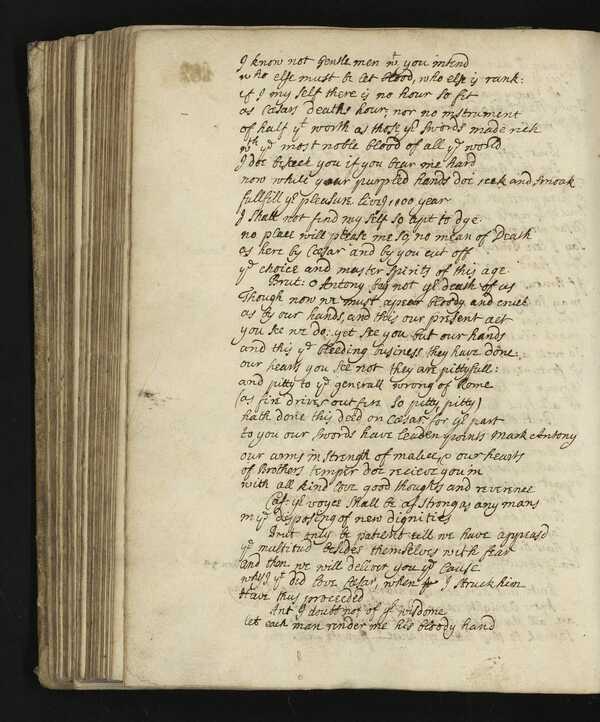 I know not Gentlemen wt you intend
who else must be let blood, who else is rank:
if I my self there is no hour so fit
as Cæsars deaths hour; nor no instrument
of half yt worth as those yr swords made rich
wth ye most noble blood of all ye world.
I doe beseek you if you bear me hard
now while your purpled hands doe reek and smoak
fullfill yr pleasure. live 1000 year
I shall not find my self so apt to dye.
no place will please me so, no mean of Death
as here by Cæsar and by you cut off
ye choice and master spirits of this age
Brut: O Antony beg not yr death of us
Though now we must apear bloody and cruel
as by our hands, and this our present act
you see we do: yet see you but our hands
and this ye bleeding business they have done.
our hearts you see not they are pittyfull:
and pitty to ye generall wrong of Rome
(as fire drives out fire so pitty, pitty)
hath done this deed on Cæsar for yr part
to you our swords have leaden points Mark Antony
our arms in strength of malice, & our hearts
of Brothers temper doe recieve you in
with all kind love good thoughts and reverence
Cas: yr voyce shall be as strong as any mans
in ye disposing of new dignities
Brut: only be patient till we have appeasd
ye multitud besides themselves with fear
and then we will deliver you ye cause
why I yt did love Cæsar, when I struck him
Have thus proceeded
Ant I doubt not of yr wisdome
let each man render me his bloody hand